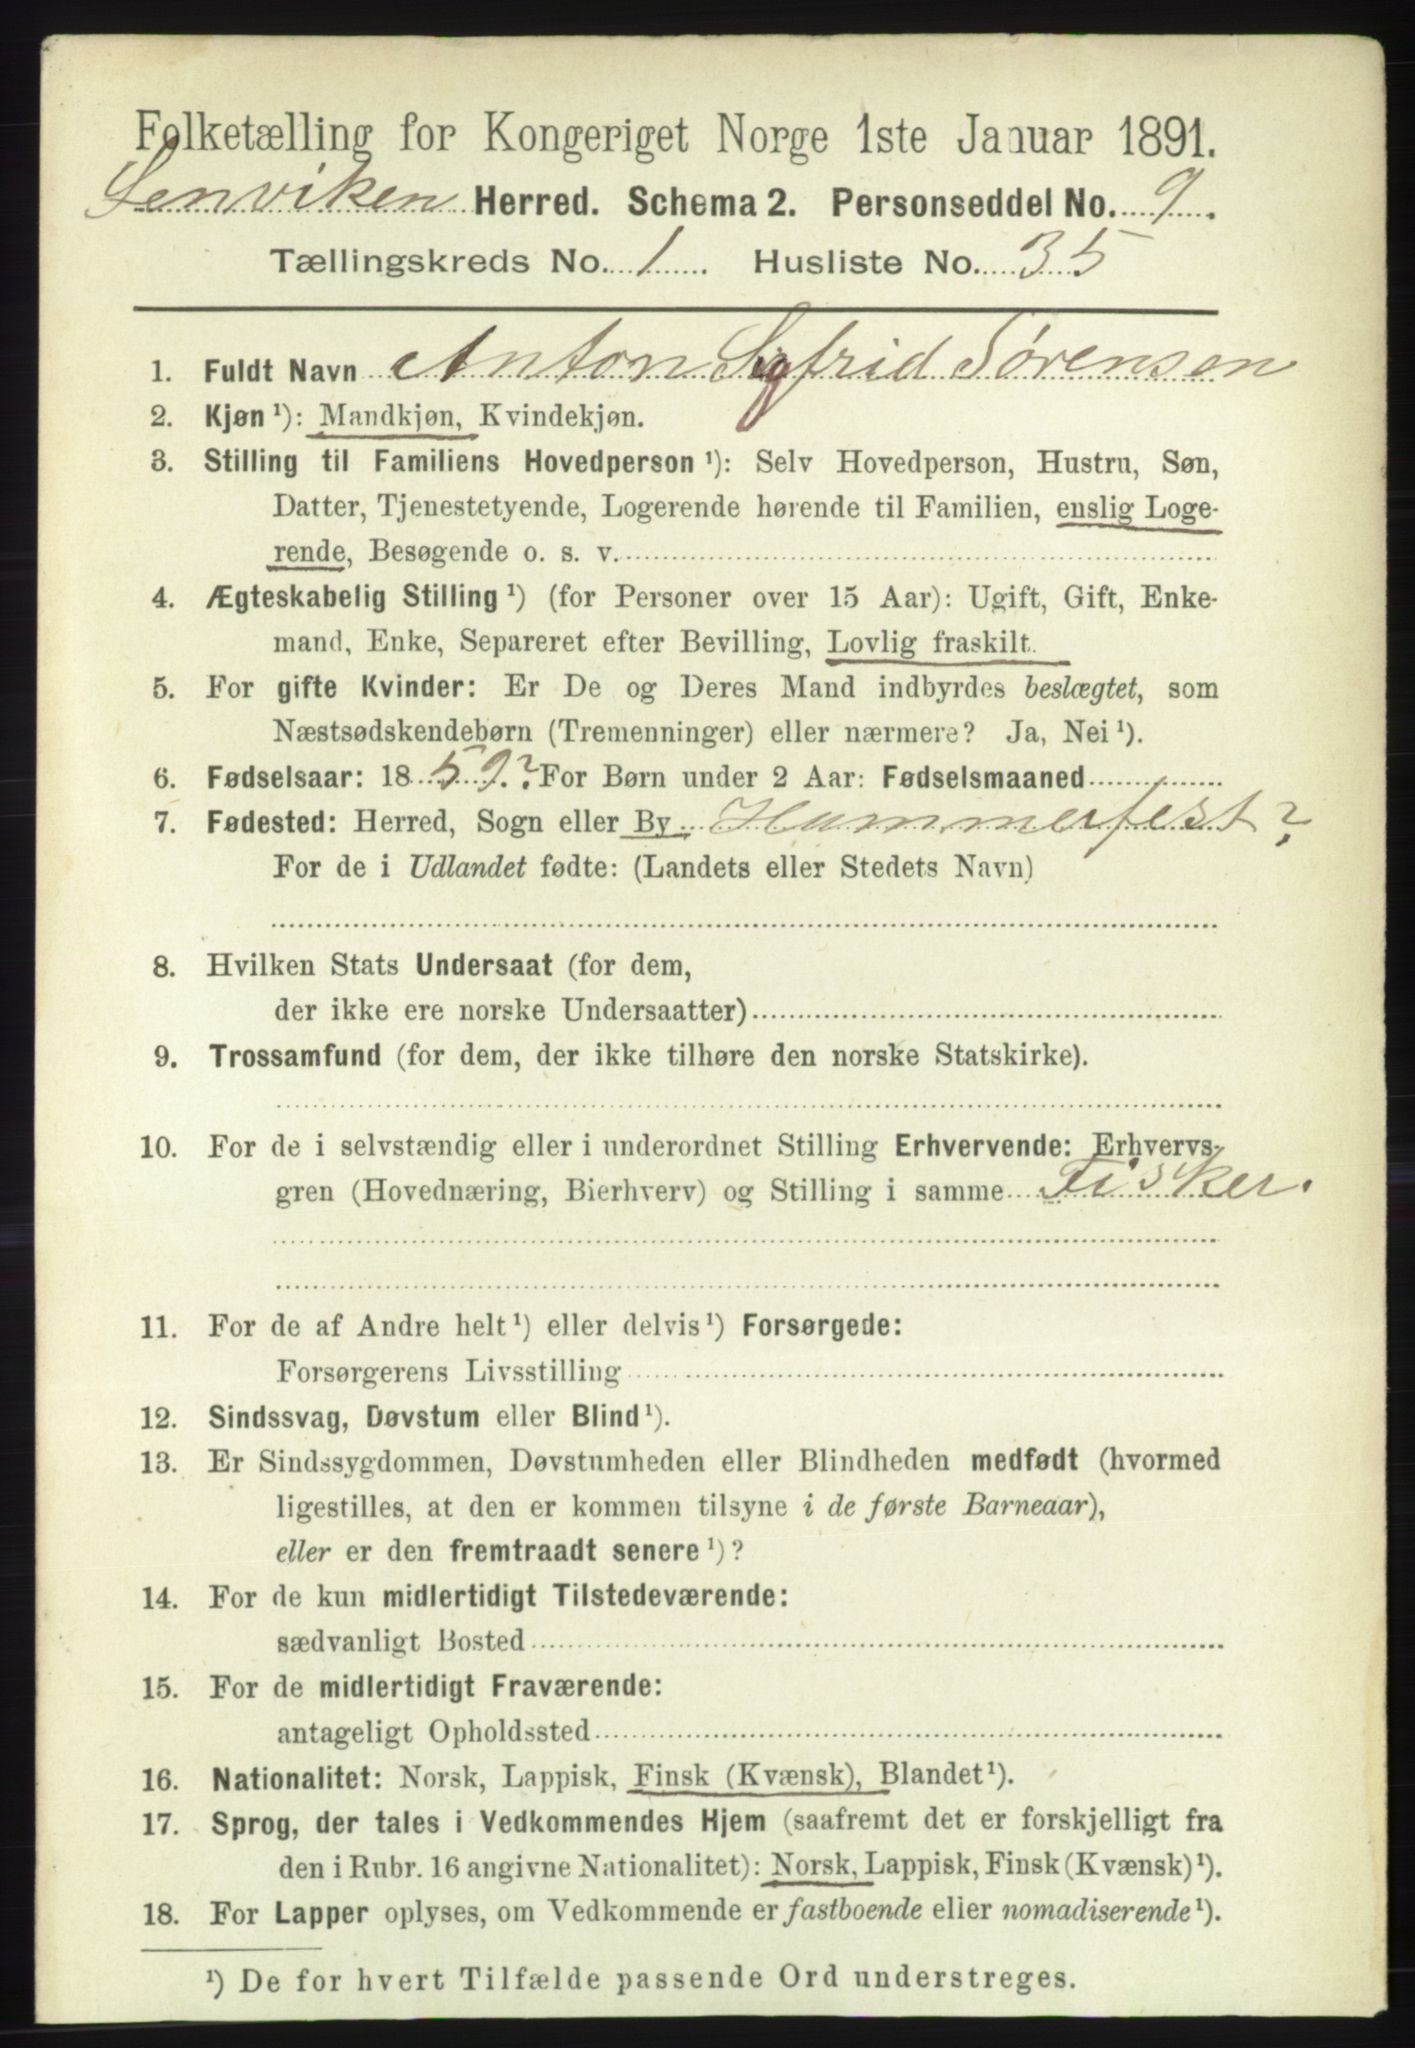 Folketælling for Kongeriget Norge 1ste Januar 1891.
Lenviken Herred. Schema 2. Personseddel No. 9.
Tællingskreds No. 1 Husliste No. 35
1. Fuldt Navn Anton Sigfrid Sørensen
2. Kjøn ¹): Mandkjøn, Kvindekjøn.
3. Stilling til Familiens Hovedperson ¹): Selv Hovedperson, Hustru, Søn,
Datter, Tjenestetyende, Logerende hørende til Familien, enslig Loge-
rende, Besøgende o. s. v.
4. Ægteskabelig Stilling ¹) (for Personer over 15 Aar): Ugift, Gift, Enke-
mand, Enke, Separeret efter Bevilling, Lovlig fraskilt.
5. For gifte Kvinder: Er De og Deres Mand indbyrdes beslægtet, som
Næstsødskendebørn (Tremenninger) eller nærmere? Ja, Nei ¹).
6. Fødselsaar: 1859? For Børn under 2 Aar: Fødselsmaaned
7. Fødested: Herred, Sogn eller By Hammerfest?
For de i Udlandet fødte: (Landets eller Stedets Navn)
8. Hvilken Stats Undersaat (for dem,
der ikke ere norske Undersaatter)
9. Trossamfund (for dem, der ikke tilhøre den norske Statskirke).
10. For de i selvstændig eller i underordnet Stilling Erhvervende: Erhvervs-
gren (Hovednæring, Bierhverv) og Stilling i samme Fisker.
11. For de af Andre helt ¹) eller delvis ¹) Forsørgede:
Forsørgerens Livsstilling
12. Sindssvag, Døvstum eller Blind ¹).
13. Er Sindssygdommen, Døvstumheden eller Blindheden medfødt (hvormed
ligestilles, at den er kommen tilsyne i de første Barneaar),
eller er den fremtraadt senere ¹)?
14. For de kun midlertidigt Tilstedeværende:
sædvanligt Bosted
15. For de midlertidigt Fraværende:
antageligt Opholdssted
16. Nationalitet: Norsk, Lappisk, Finsk (Kvænsk), Blandet ¹).
17. Sprog, der tales i Vedkommendes Hjem (saafremt det er forskjelligt fra
den i Rubr. 16 angivne Nationalitet): Norsk, Lappisk, Finsk (Kvænsk) ¹).
18. For Lapper oplyses, om Vedkommende er fastboende eller nomadiserende ¹).
¹) De for hvert Tilfælde passende Ord understreges.